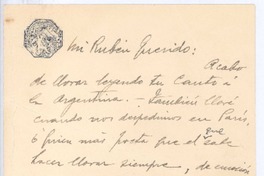 Mi Rubén Querido:
Acabo
de llorar leyendo tu Canto á
la Argentina. - También lloré
cuando nos despedimos en París,
ó fuiste más poeta que el que sabe
hacer llorar siempre, de emoción